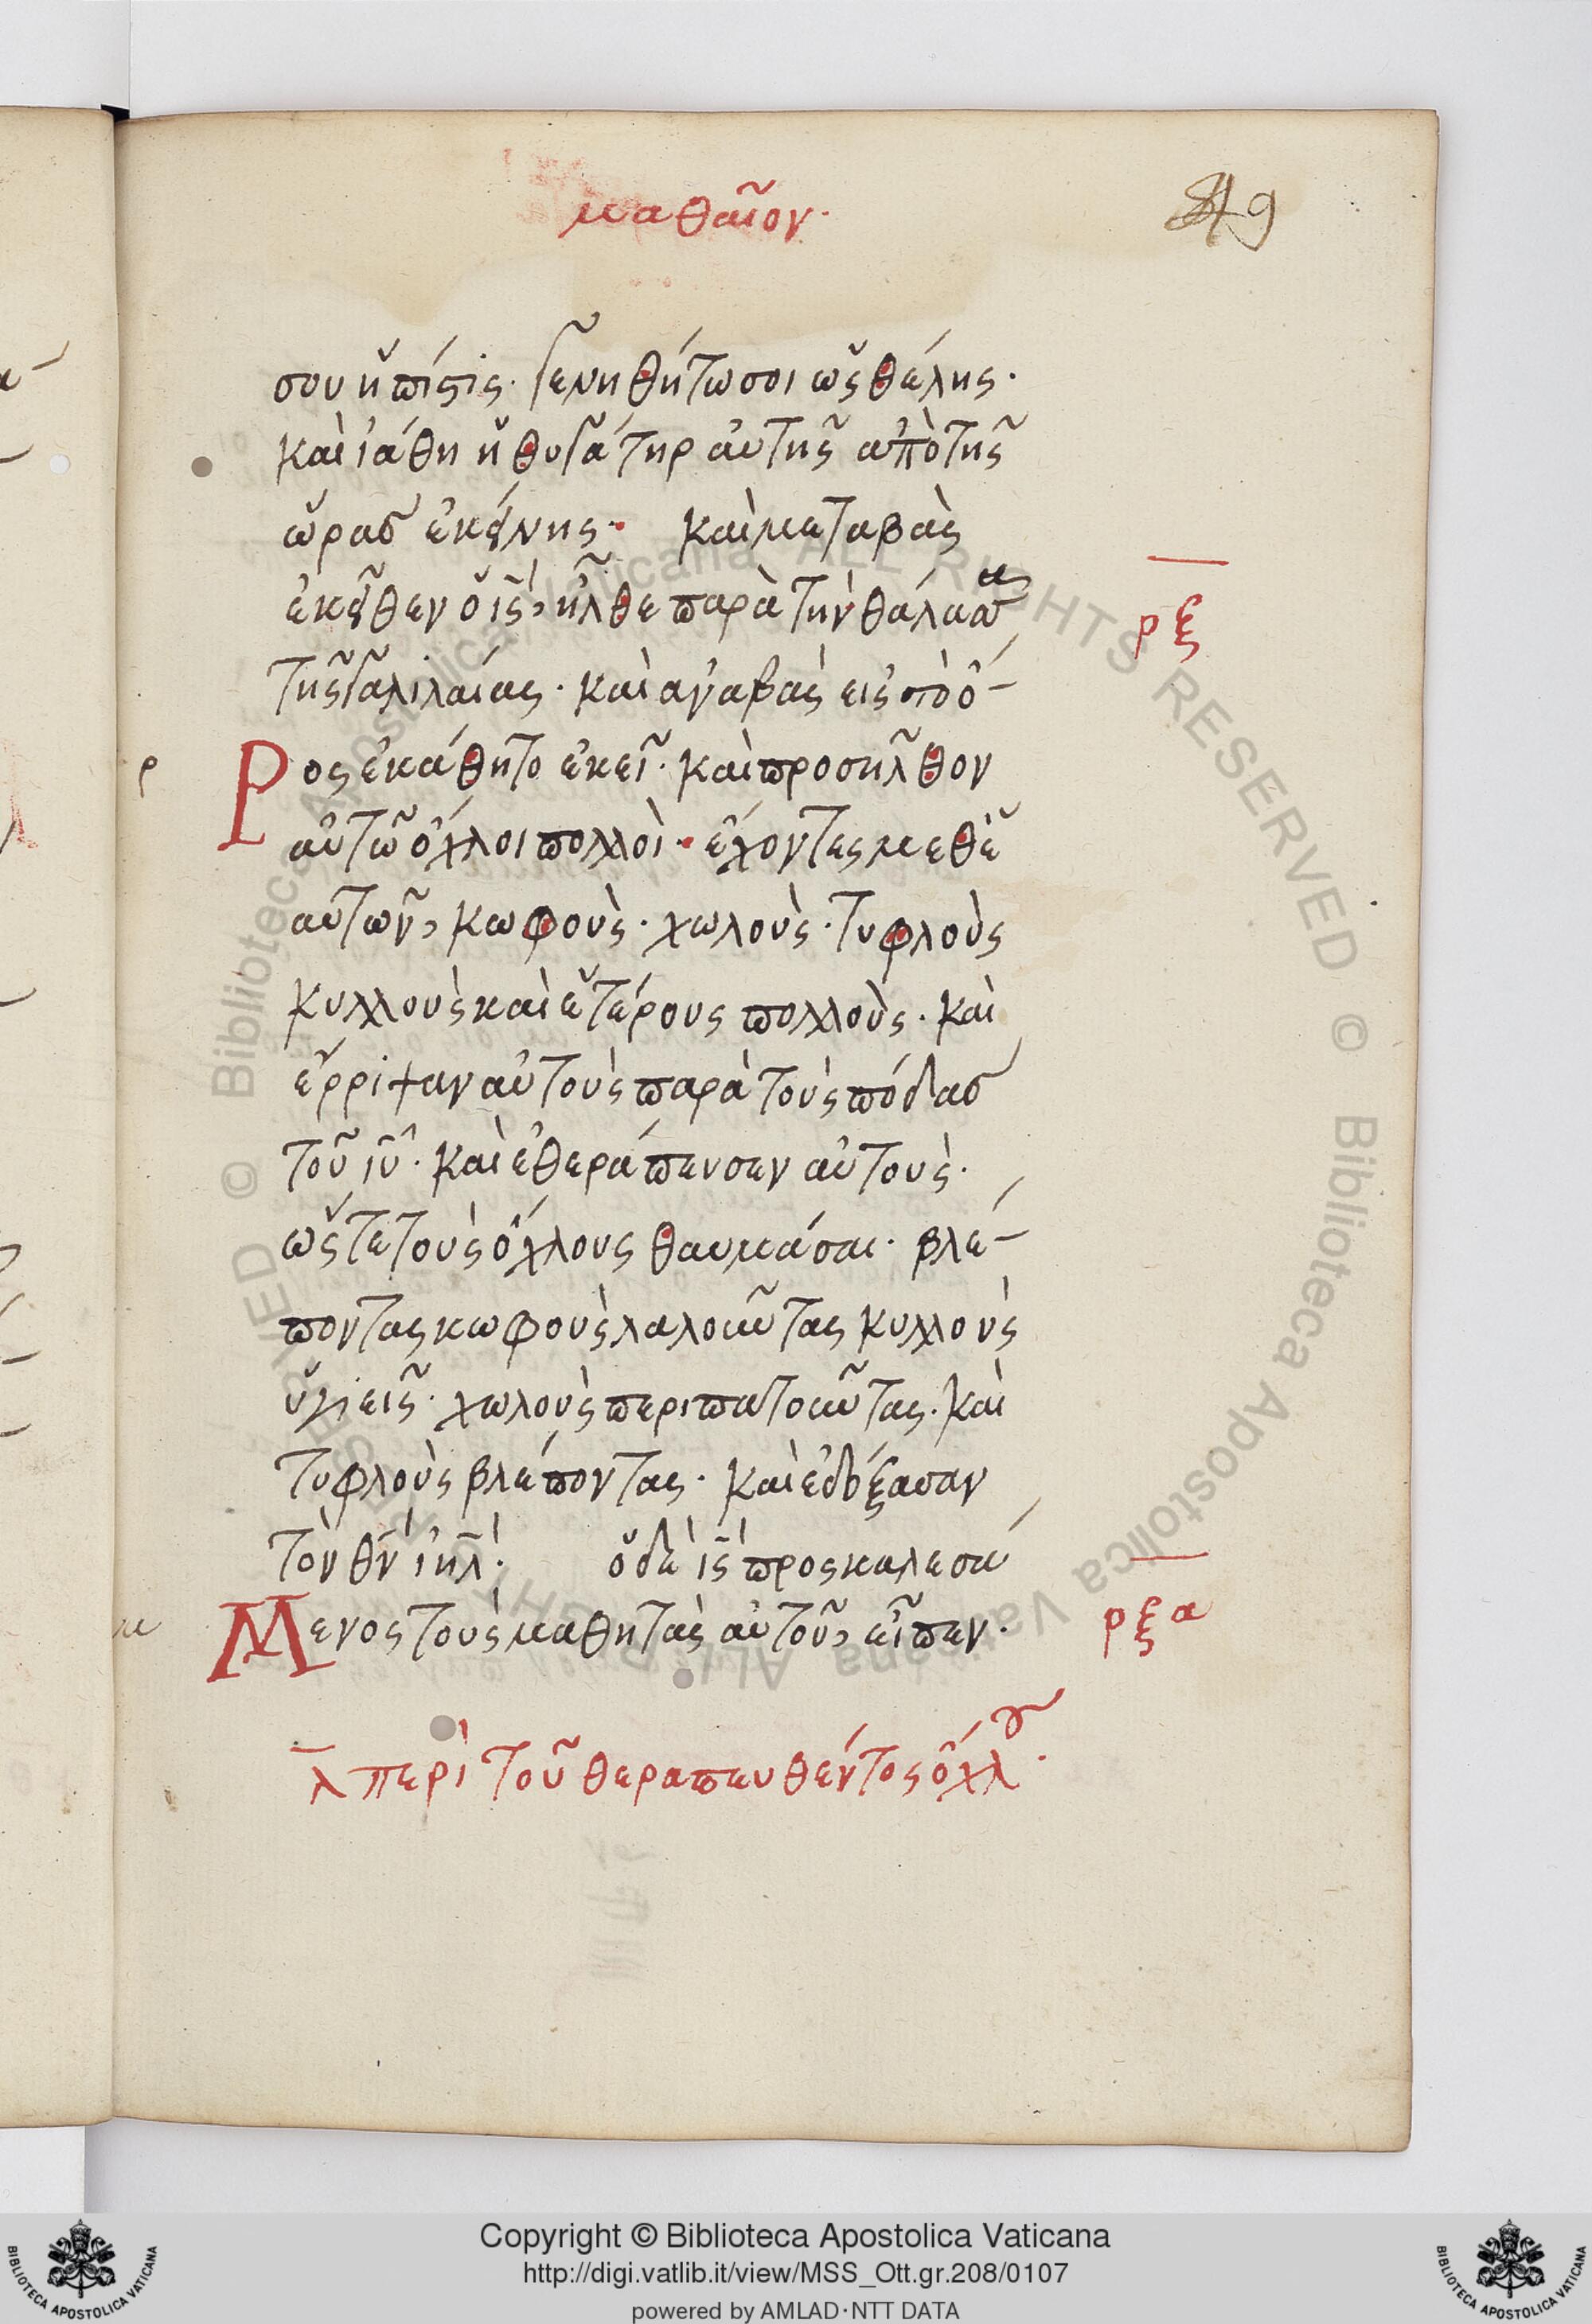 μαθαῖον·
49
σου ἡ πίστις· γενηθήτω σοι ὡς θέλης·
καὶ ἰάθη ἡ θυγάτηρ αὐτῆς ἀπὸ τῆς
ὥρας ἐκείνης· καὶ μεταβὰς
ἐκεῖθεν ὁ ις, ἦλθε παρὰ τὴν θάλασσ
ρξ
τῆς γαλιλαίας· καὶ ἀναβὰς εἰς τὸ ὄ-
ρ Ρος ἐκάθητο ἐκεῖ· καὶ προσῆλθον
αὐτῶ ὄχλοι πολλοὶ· ἔχοντες μεθ' ἑ
αὑτῶν, κωφοὺς· χωλοὺς· τυφλοὺς
κυλλοὺς καὶ ἑτέρους πολλοὺς· καὶ
ἔρριψαν αὐτοὺς παρὰ τοὺς πόδας
τοῦ ιυ· καὶ ἐθεράπευσεν αὐτοὺς·
ὥς τε τοὺς ὄχλους θαυμάσαι· βλέ-
ποντας κωφοὺς λαλοῦντας κυλλοὺς
ὑγιεῖς· χωλοὺς περιπατοῦντας· καὶ
τυφλοὺς βλέποντας· καὶ ἐδόξασαν
τὸν θν ιηλ· ὁ δὲ ις προςκαλεσά
μ Μενος τοὺς μαθητὰς αὐτοῦ, εἶπεν·
ρξα
λ περὶ τοῦ θεραπευθέντος ὄχλου·
© Biblioteca Apostolica Vaticana ALL RIGHTS RESERVED © Biblioteca Apostolica Vaticana ALL RIGHTS RESERVED
Copyright © Biblioteca Apostolica Vaticana
http://digi.vatlib.it/view/MSS_Ott.gr.208/0107
powered by AMLAD·NTT DATA
BIBLIOTECA APOSTOLICA VATICANA
BIBLIOTECA APOSTOLICA VATICANA